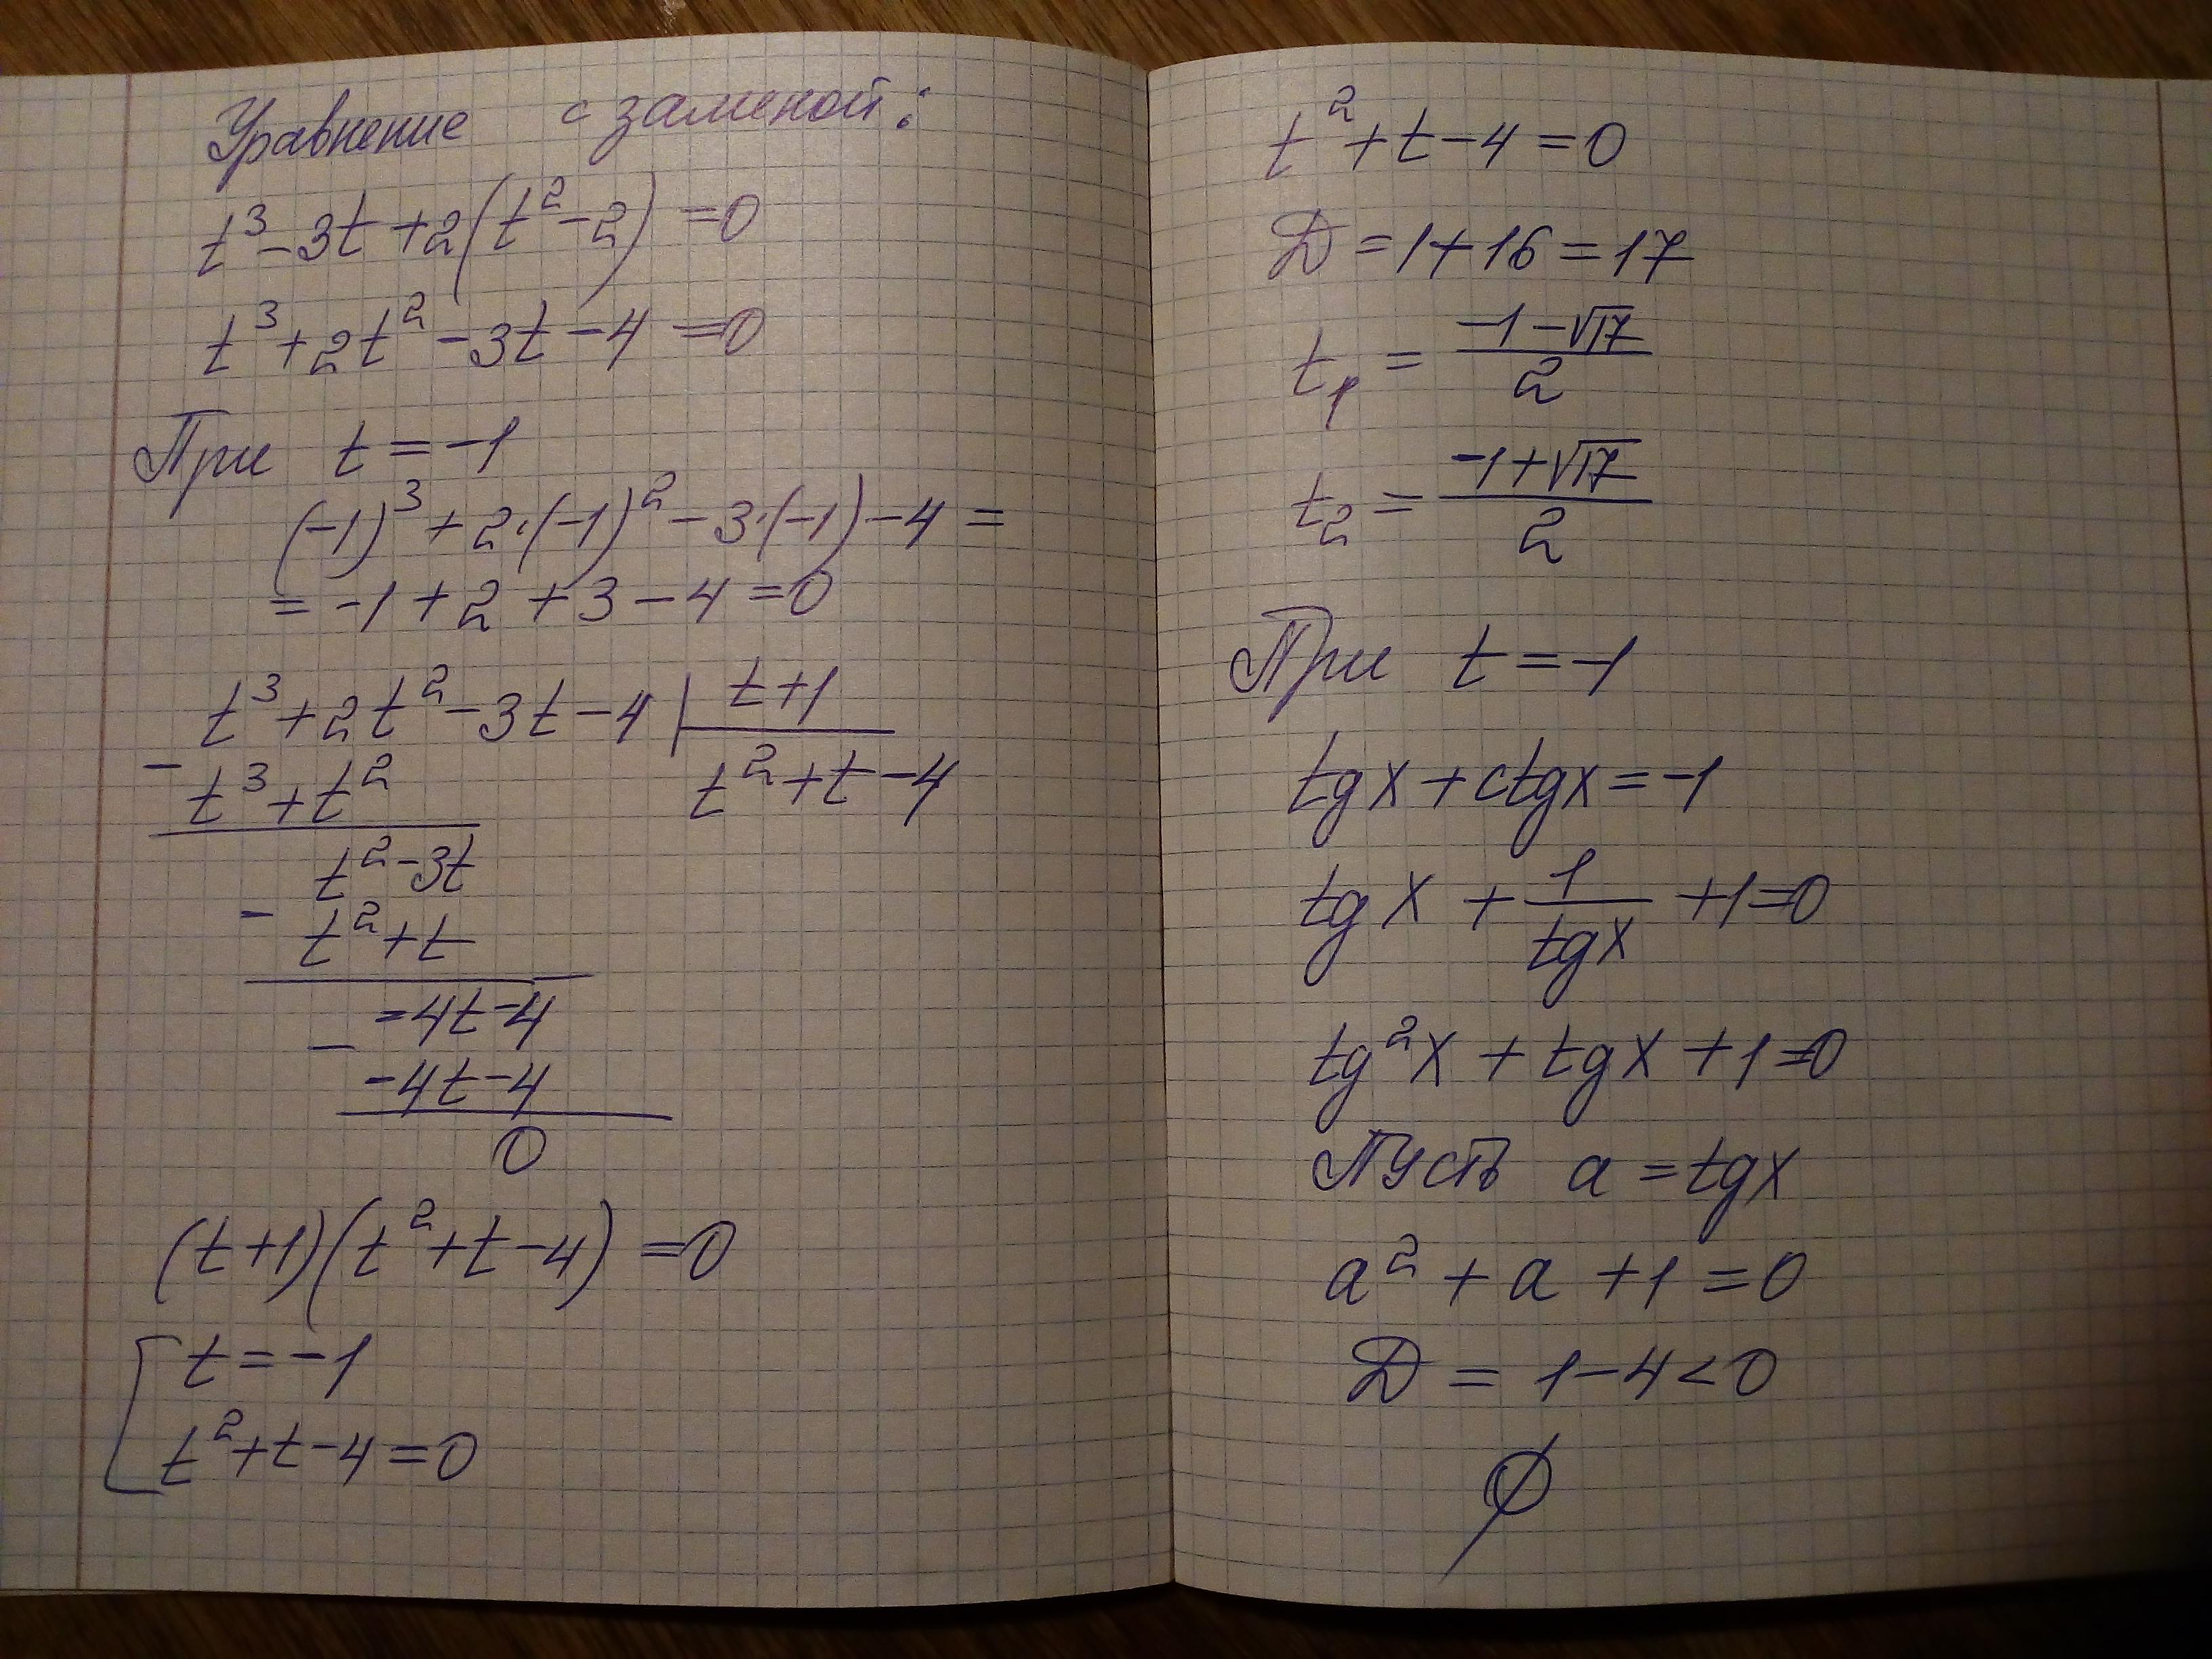 Уравнение с заменой:
t³-3t+2(t²-2)=0
t³+2t²-3t-4=0
При t=-1
(-1)³+2·(-1)²-3·(-1)-4=
=-1+2+3-4=0
t³+2t²-3t-4 | t+1
- t³+t² t²+t-4
t²-3t
- t²+t
-4t-4
- -4t-4
0
(t+1)(t²+t-4)=0
[ t=-1
t²+t-4=0
t²+t-4=0
Д=1+16=17
t₁ = (-1-√17)/2
t₂ = (-1+√17)/2
При t=-1
tgx+ctgx=-1
tgx + 1/tgx +1=0
tg²x+tgx+1=0
Пусть a=tgx
a²+a+1=0
Д = 1-4<0
∅